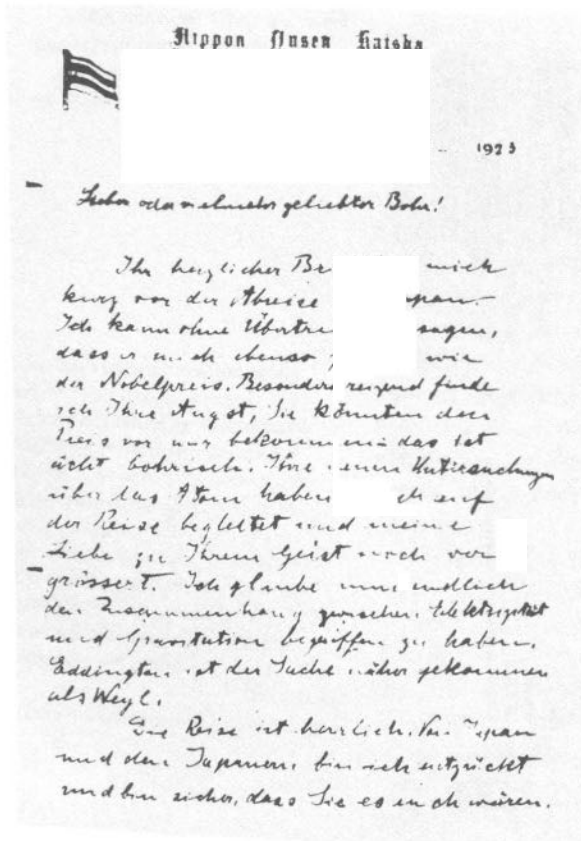 Nippon Yusen Kaisha
1923
Lieber oder vielmehr geliebter Bohr!
Ihr herzlicher Br mich
kurz vor der Abreise pan.
Ich kann ohne Übertre sagen,
dass er mich ebenso wie
der Nobelpreis. Besonders reizend finde
ich Ihre Angst, Sie könnten den
Preis vor mir bekommen das ist
ächt bohrisch. Ihre neuen Untersuchungen
über das Atom haben ch auf
der Reise begleitet und meine
Liebe zu Ihrem Geist noch ver
grössert. Ich glaube nun endlich
den Zusammenhang zwischen Elektrizität
und Gravitation begriffen zu haben.
Eddington ist der Sache näher gekommen
als Weyl.
Die Reise ist herrlich. Von Japan
und den Japanern bin ich entzückt
und bin sicher, dass Sie es auch wären.